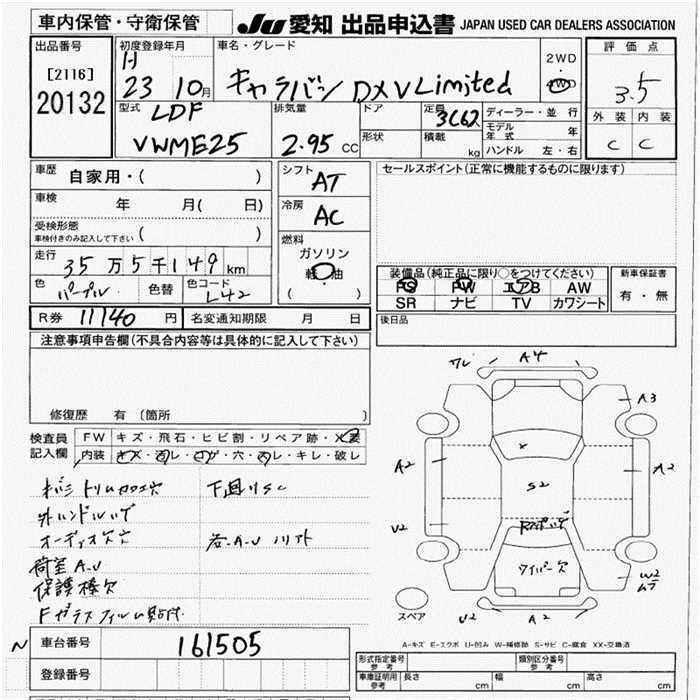 車内保管・守衛保管
JU 愛知 出品申込書 JAPAN USED CAR DEALERS ASSOCIATION
出品番号
[2116]
20132
初度登録年月
H
23 10月
車名・グレード
キャラバン DX V Limited
2WD
4WD
評価点
3.5
外装 内装
C C
型式
LDF
VWME25
排気量
2.95 CC
ドア
形状
定員
積載 kg
ディーラー・並行
モデル年式 年
ハンドル 左・右
車歴 自家用・( )
車検 年 月( 日)
受検形態
車検付きのみ記入して下さい ( )
走行 35万5千149 km
色 パープル 色替 色コード L42
シフト AT
冷房 AC
燃料
ガソリン
軽油
( )
セールスポイント(正常に機能するものに限ります)
装備品(純正品に限り○をつけてください)
PS PW エアB AW
SR ナビ TV カワシート
新車保証書
有・無
後日品
R券 11140 円 名変通知期限 月 日
注意事項申告欄(不具合内容等は具体的に記入して下さい)
修復歴 有 (箇所 )
検査員
記入欄
FW キズ・飛石・ヒビ割・リペア跡・X要
内装 キズ・汚レ・コゲ・穴・スレ・キレ・破レ
下回りSC
外ハンドルハゲ
オーディオ欠
荷室A.U
保護棒欠
Fガラスフィルム貼付
ワレ A4
A3
A2
A2
S2
U2
ワイパー欠
W2
スペア
U2 A2
A-キズ E-エクボ U-凹み W-補修跡 S-サビ C-腐食 XX-交換済
N
車台番号 161505
登録番号
形式指定番号
参考
類別区分番号
参考
車庫証明用
参考
長さ cm 幅 cm 高さ cm